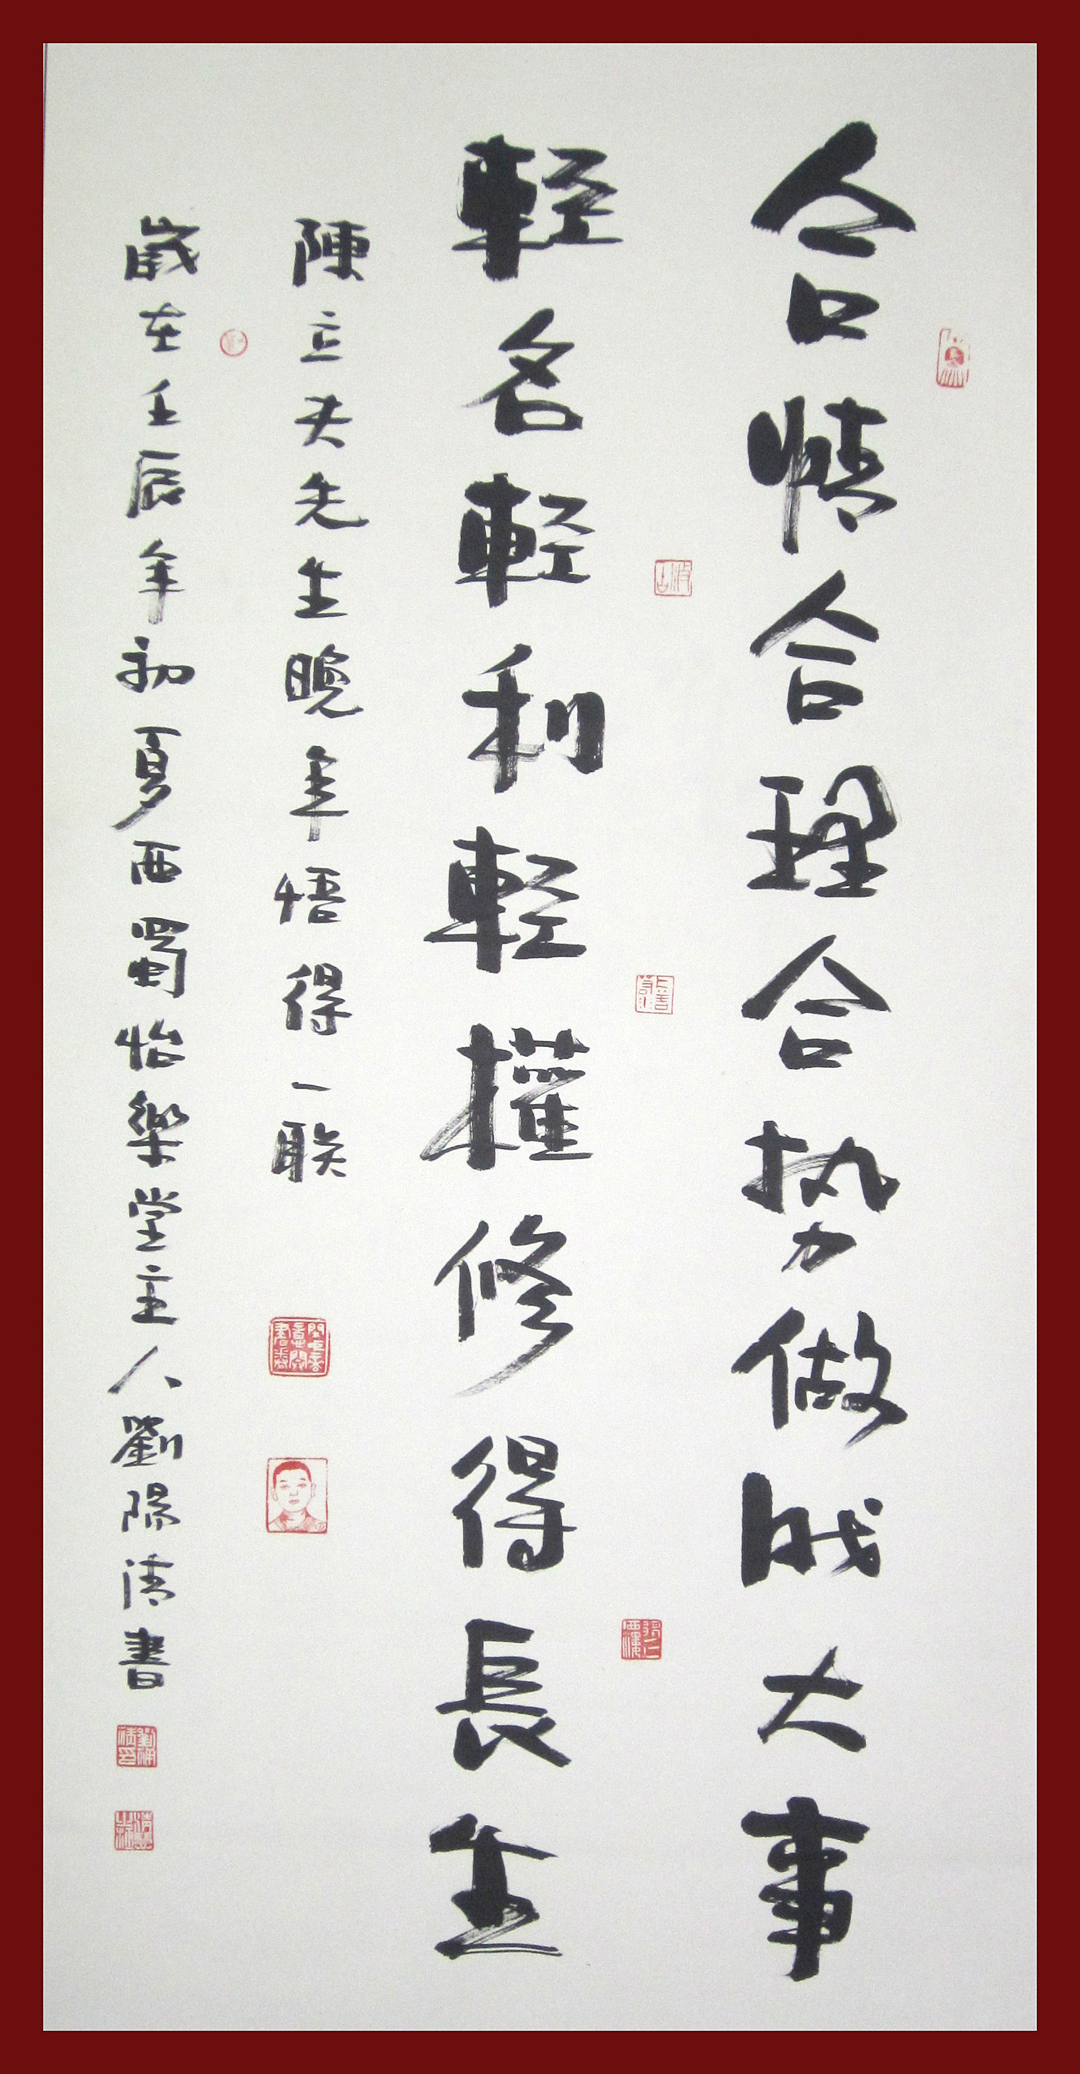 合情合理合势做成大事
輕名輕利輕權修得長生
陳立夫先生晚年悟得一联
歲在壬辰年初夏西蜀怡樂堂主人劉陽清書